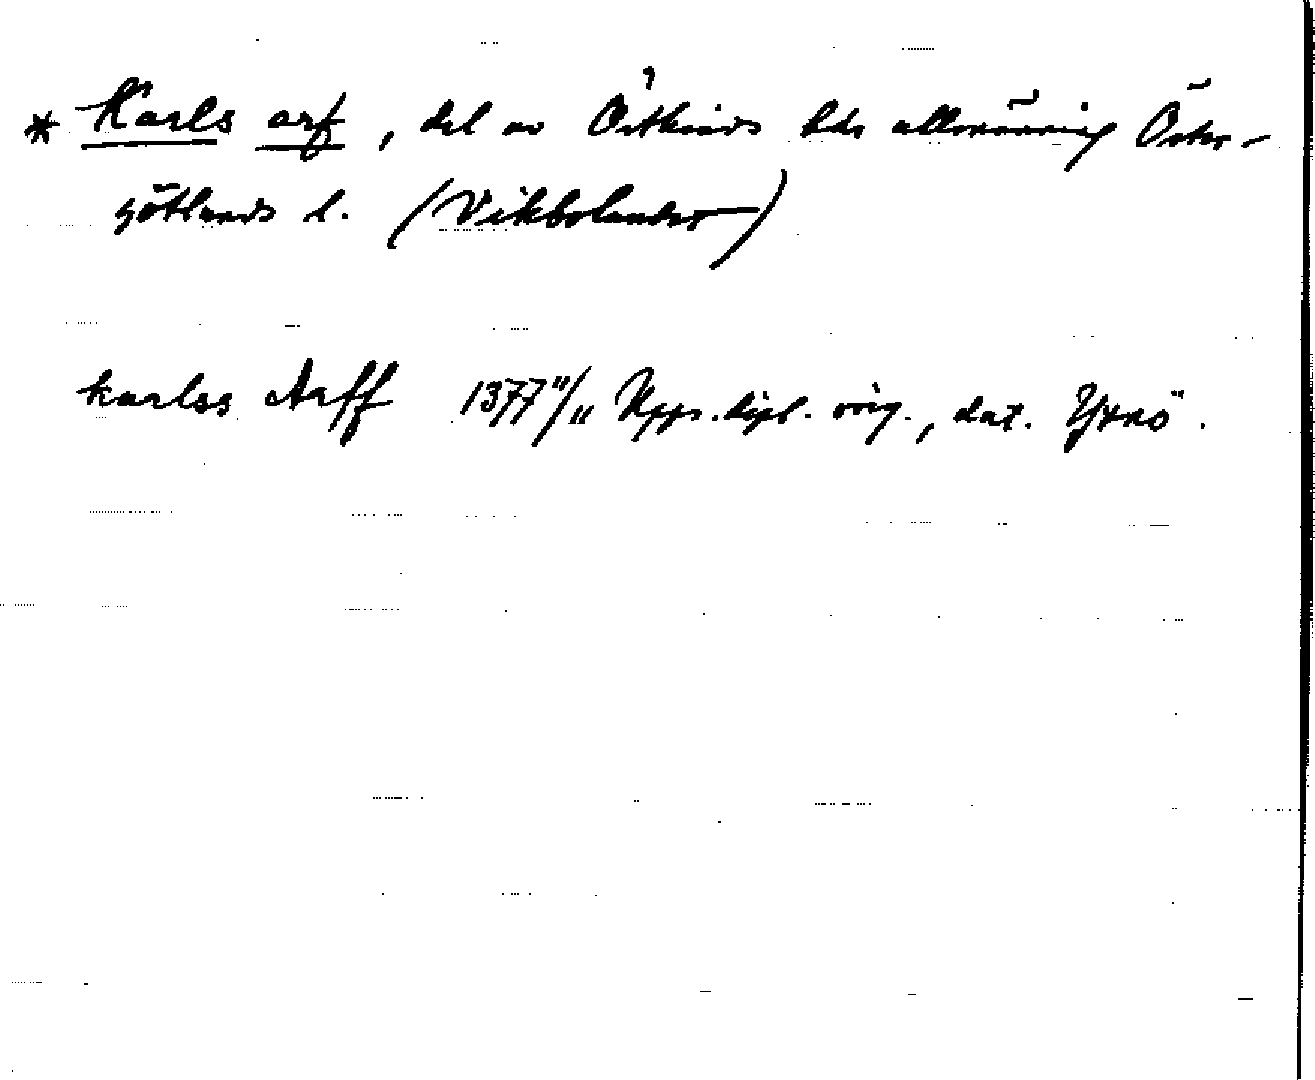 * Karls arf, del av Östkinds hds allmänning Öster-
götlands l. (Vikbolandet)
karlss Arff 1377 11/11 Upps. dipl. orig., dat. Ytnö.